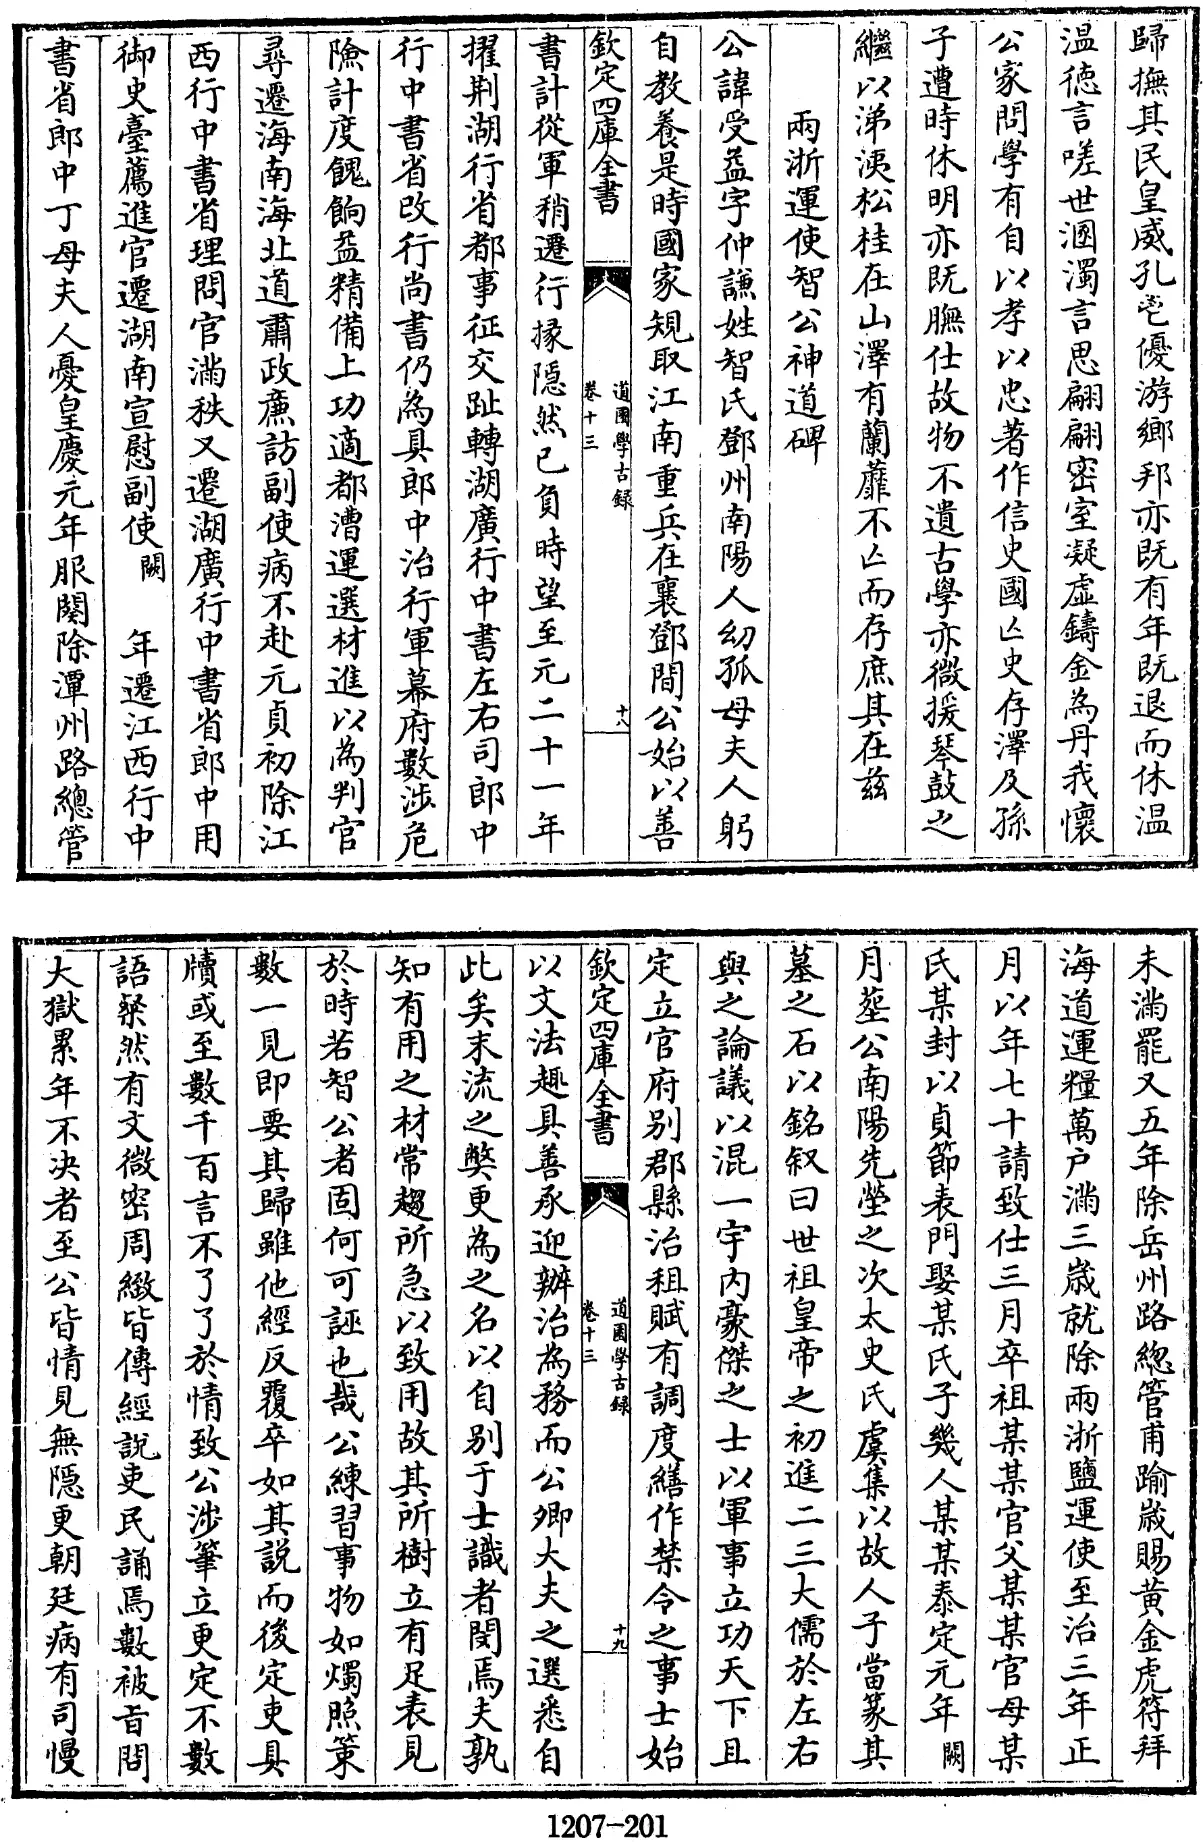 歸撫其民皇威孔壱優游鄉邦亦既有年既退而休温
温徳言嗟世溷濁言思翩翩密室凝虛鑄金為丹我懷
公家問學有自以孝以忠著作信史國亡史存澤及孫
子遭時休明亦既膴仕故物不遺古學亦微援琴鼓之
繼以涕洟松桂在山澤有蘭蘼不亡而存庶其在兹
兩浙運使智公神道碑
公諱受益字仲謙姓智氏鄧州南陽人幼孤母夫人躬
自教養是時國家規取江南重兵在襄鄧間公始以善
欽定四庫全書
道園學古録
卷十三
十八
書計從軍稍遷行掾隱然已負時望至元二十一年
擢荆湖行省都事征交趾轉湖廣行中書左右司郎中
行中書省改行尚書仍為具郎中治行軍幕府數涉危
險計度餽餉益精備上功適都漕運選材進以為判官
尋遷海南海北道肅政亷訪副使病不赴元貞初除江
西行中書省理問官滿秩又遷湖廣行中書省郎中用
御史臺薦進官遷湖南宣慰副使闕 年遷江西行中
書省郎中丁母夫人憂皇慶元年服闋除潭州路總管
未滿罷又五年除岳州路總管甫踰嵗賜黄金虎符拜
海道運糧萬户滿三嵗就除兩浙鹽運使至治三年正
月以年七十請致仕三月卒祖某某官父某某官母某
氏某封以貞節表門娶某氏子幾人某某泰定元年闕
月塟公南陽先塋之次太史氏虞集以故人子當篆其
墓之石以銘叙曰世祖皇帝之初進二三大儒於左右
與之論議以混一宇内豪傑之士以軍事立功天下且
定立官府别郡縣治租賦有調度繕作禁令之事士始
欽定四庫全書
道園學古録
卷十三
十九
以文法趣具善承迎辦治為務而公卿大夫之選悉自
此矣末流之獘更為之名以自别于士識者閔焉夫孰
知有用之材常趨所急以致用故其所樹立有足表見
於時若智公者固何可誣也哉公練習事物如燭照策
數一見即要其歸雖他經反覆卒如其說而後定吏具
牘或至數千百言不了了於情致公涉筆立更定不數
語粲然有文微密周緻皆傳經說吏民誦焉數被旨問
大獄累年不决者至公皆情見無隱更朝廷病有司慢
1207-201